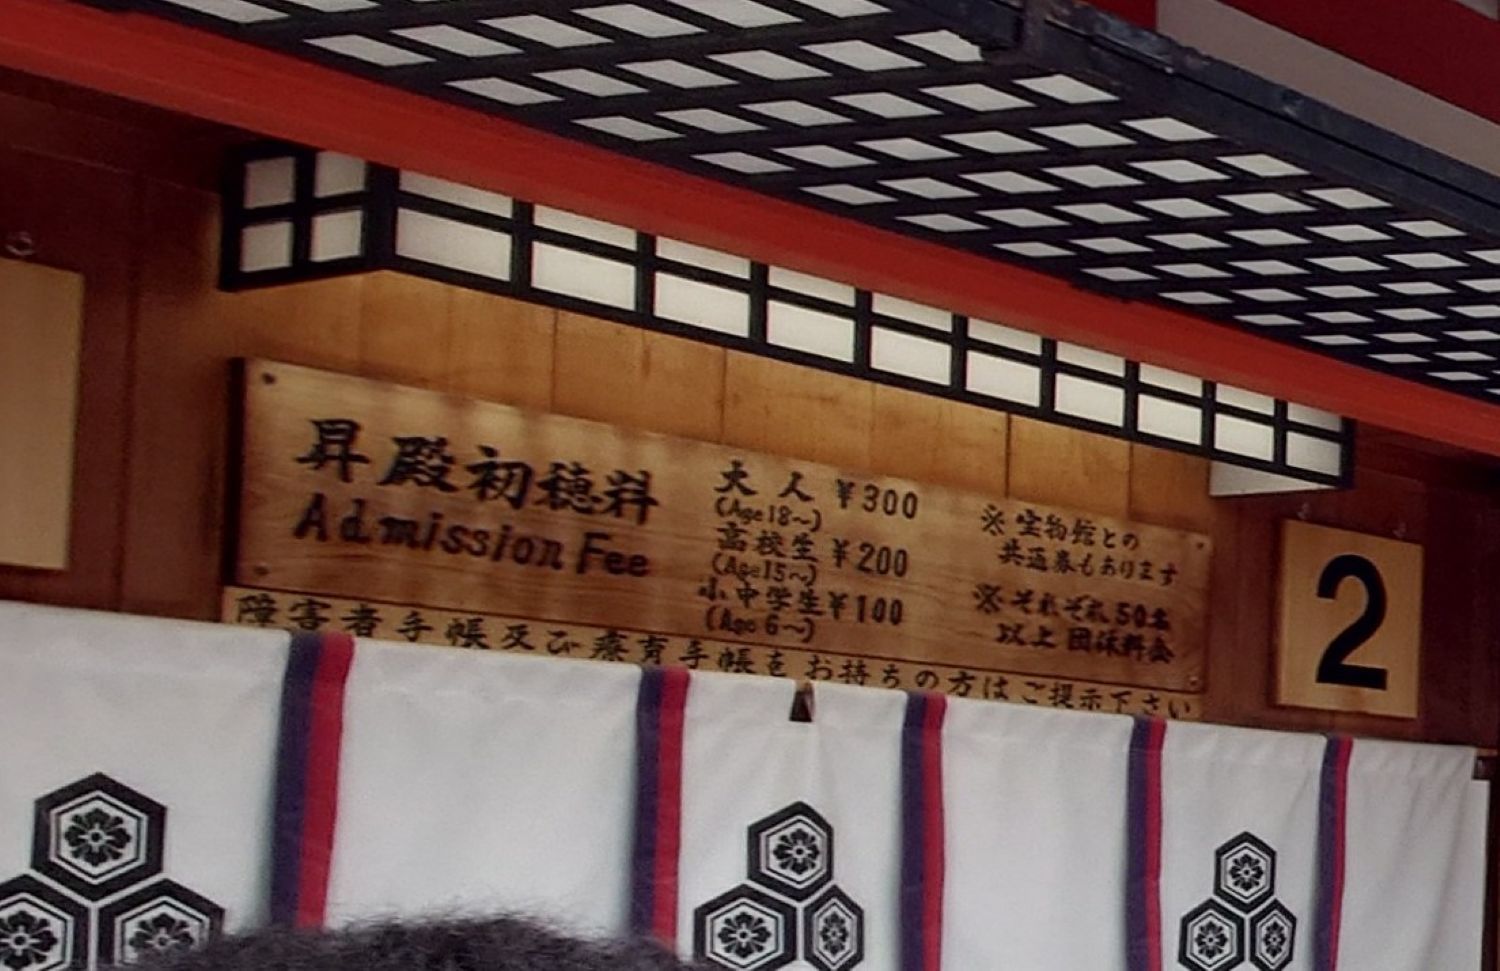 昇殿初穂料
Admission Fee
大人 ¥300
(Age18~)
高校生 ¥200
(Age15~)
小中学生 ¥100
(Age 6~)
※宝物館との
共通券もあります
※それぞれ50名
以上 団体料金
障害者手帳及び療育手帳をお持ちの方はご提示下さい
2